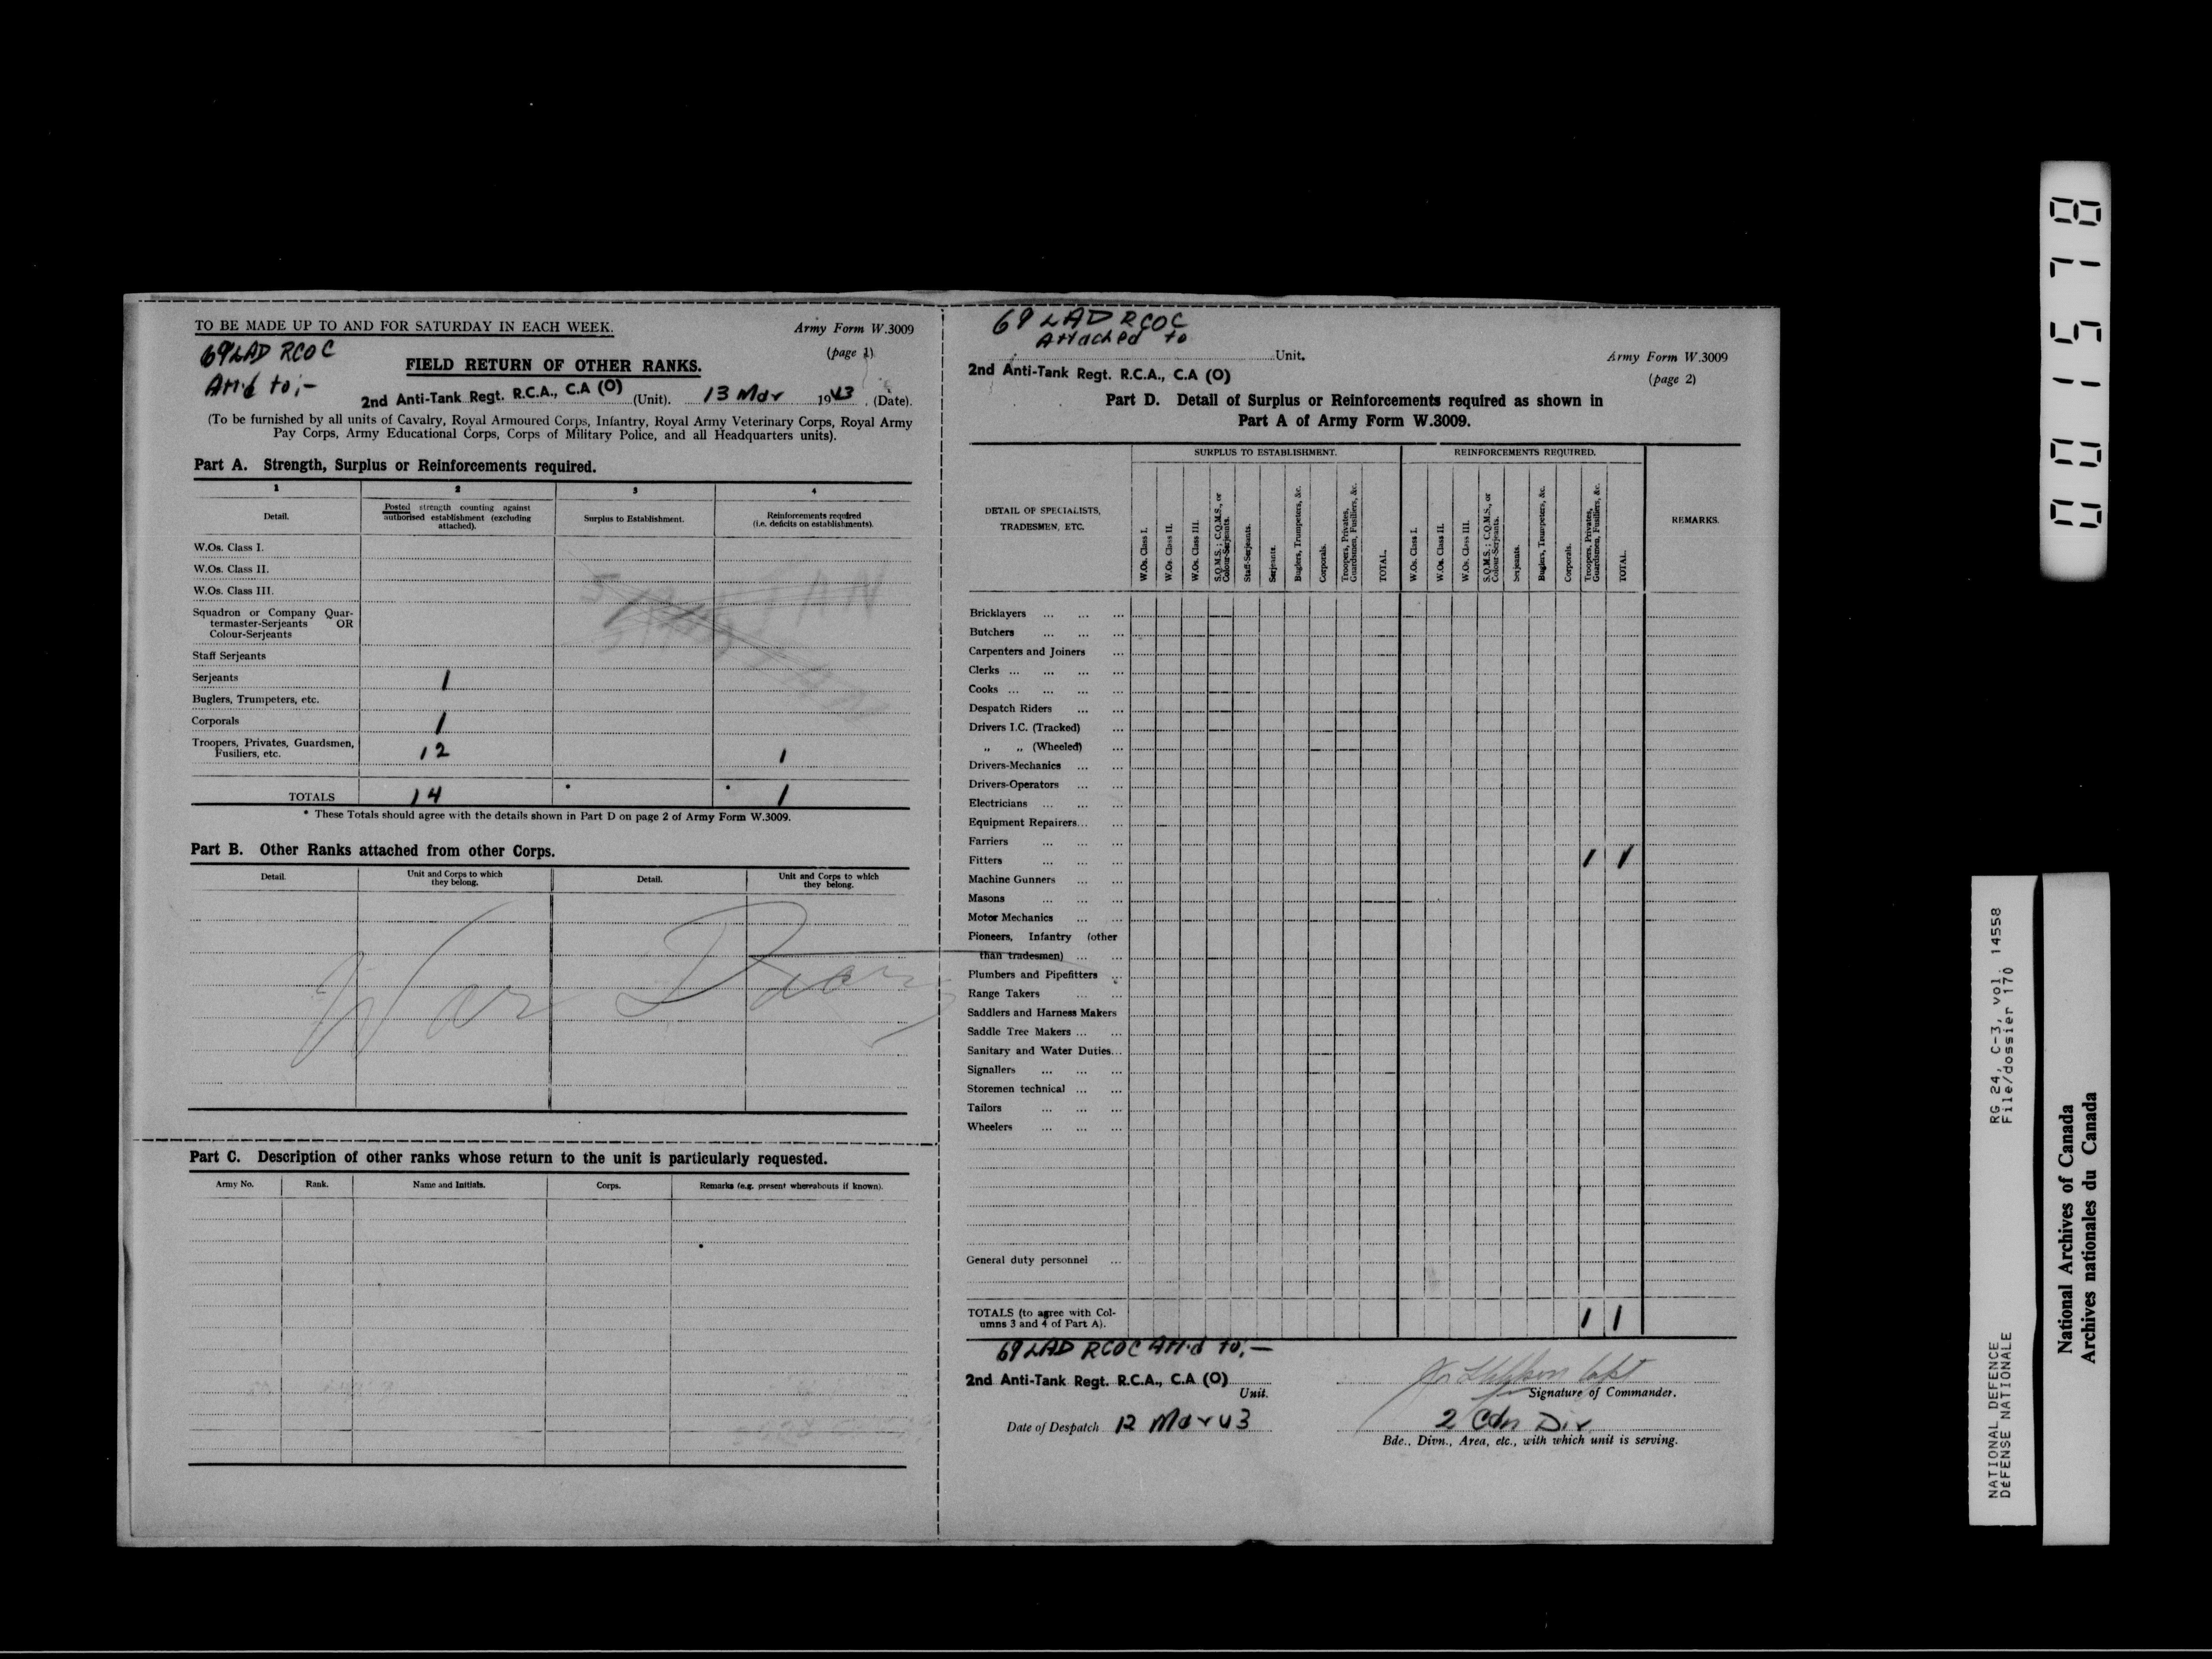 TO BE MADE UP TO AND FOR SATURDAY IN EACH WEEK.
Army Form W.3009
(page 1)
69 LAD RCOC
Att'd to;-
FIELD RETURN OF OTHER RANKS.
2nd Anti-Tank Regt. R.C.A., C.A (O) (Unit). 13 Mar 1943. (Date).
(To be furnished by all units of Cavalry, Royal Armoured Corps, Infantry, Royal Army Veterinary Corps, Royal Army
Pay Corps, Army Educational Corps, Corps of Military Police, and all Headquarters units).
Part A. Strength, Surplus or Reinforcements required.
1 2 3 4
Detail. Posted strength counting against authorised establishment (excluding attached). Surplus to Establishment. Reinforcements required (i.e. deficits on establishments).
W.Os. Class I.
W.Os. Class II.
W.Os. Class III.
Squadron or Company Quar-
termaster-Serjeants OR
Colour-Serjeants
Staff Serjeants
Serjeants 1
Buglers, Trumpeters, etc.
Corporals 1
Troopers, Privates, Guardsmen,
Fusiliers, etc. 12 1
TOTALS 14 * * 1
* These Totals should agree with the details shown in Part D on page 2 of Army Form W.3009.
Part B. Other Ranks attached from other Corps.
Detail. Unit and Corps to which they belong. Detail. Unit and Corps to which they belong.
War Diary
Part C. Description of other ranks whose return to the unit is particularly requested.
Army No. Rank. Name and Initials. Corps. Remarks (e.g. present whereabouts if known).
69 LAD RCOC
Attached to
Unit.
2nd Anti-Tank Regt. R.C.A., C.A (O)
Army Form W.3009
(page 2)
Part D. Detail of Surplus or Reinforcements required as shown in
Part A of Army Form W.3009.
DETAIL OF SPECIALISTS,
TRADESMEN, ETC.
SURPLUS TO ESTABLISHMENT.
W.Os. Class I.
W.Os. Class II.
W.Os. Class III.
S.Q.M.S.; C.Q.M.S., or Colour-Serjeants.
Staff-Serjeants.
Serjeants.
Buglers, Trumpeters, &c.
Corporals.
Troopers, Privates, Guardsmen, Fusiliers, &c.
TOTAL.
REINFORCEMENTS REQUIRED.
W.Os. Class I.
W.Os. Class II.
W.Os. Class III.
S.Q.M.S.; C.Q.M.S., or Colour-Serjeants.
Serjeants.
Buglers, Trumpeters, &c.
Corporals.
Troopers, Privates, Guardsmen, Fusiliers, &c.
TOTAL.
REMARKS.
Bricklayers ... ... ...
Butchers ... ... ...
Carpenters and Joiners ...
Clerks ... ... ... ...
Cooks ... ... ... ...
Despatch Riders ... ...
Drivers I.C. (Tracked) ...
„ „ (Wheeled) ...
Drivers-Mechanics ... ...
Drivers-Operators ... ...
Electricians ... ... ...
Equipment Repairers... ...
Farriers ... ... ...
Fitters ... ... ... 1 1
Machine Gunners ... ...
Masons ... ... ...
Motor Mechanics ... ...
Pioneers, Infantry (other
than tradesmen) ... ...
Plumbers and Pipefitters ...
Range Takers ... ...
Saddlers and Harness Makers
Saddle Tree Makers ... ...
Sanitary and Water Duties...
Signallers ... ... ...
Storemen technical ... ...
Tailors ... ... ...
Wheelers ... ... ...
General duty personnel ...
TOTALS (to agree with Col-
umns 3 and 4 of Part A). 1 1
69 LAD RCOC Att'd to;-
2nd Anti-Tank Regt. R.C.A., C.A (O)
Unit.
Capt
Signature of Commander.
Date of Despatch 12 Mar 43
2 Cdn Div.
Bde., Divn., Area, etc., with which unit is serving.
001578
RG 24, C-3, vol. 14558
File/dossier 170
NATIONAL DEFENCE
DÉFENSE NATIONALE
National Archives of Canada
Archives nationales du Canada